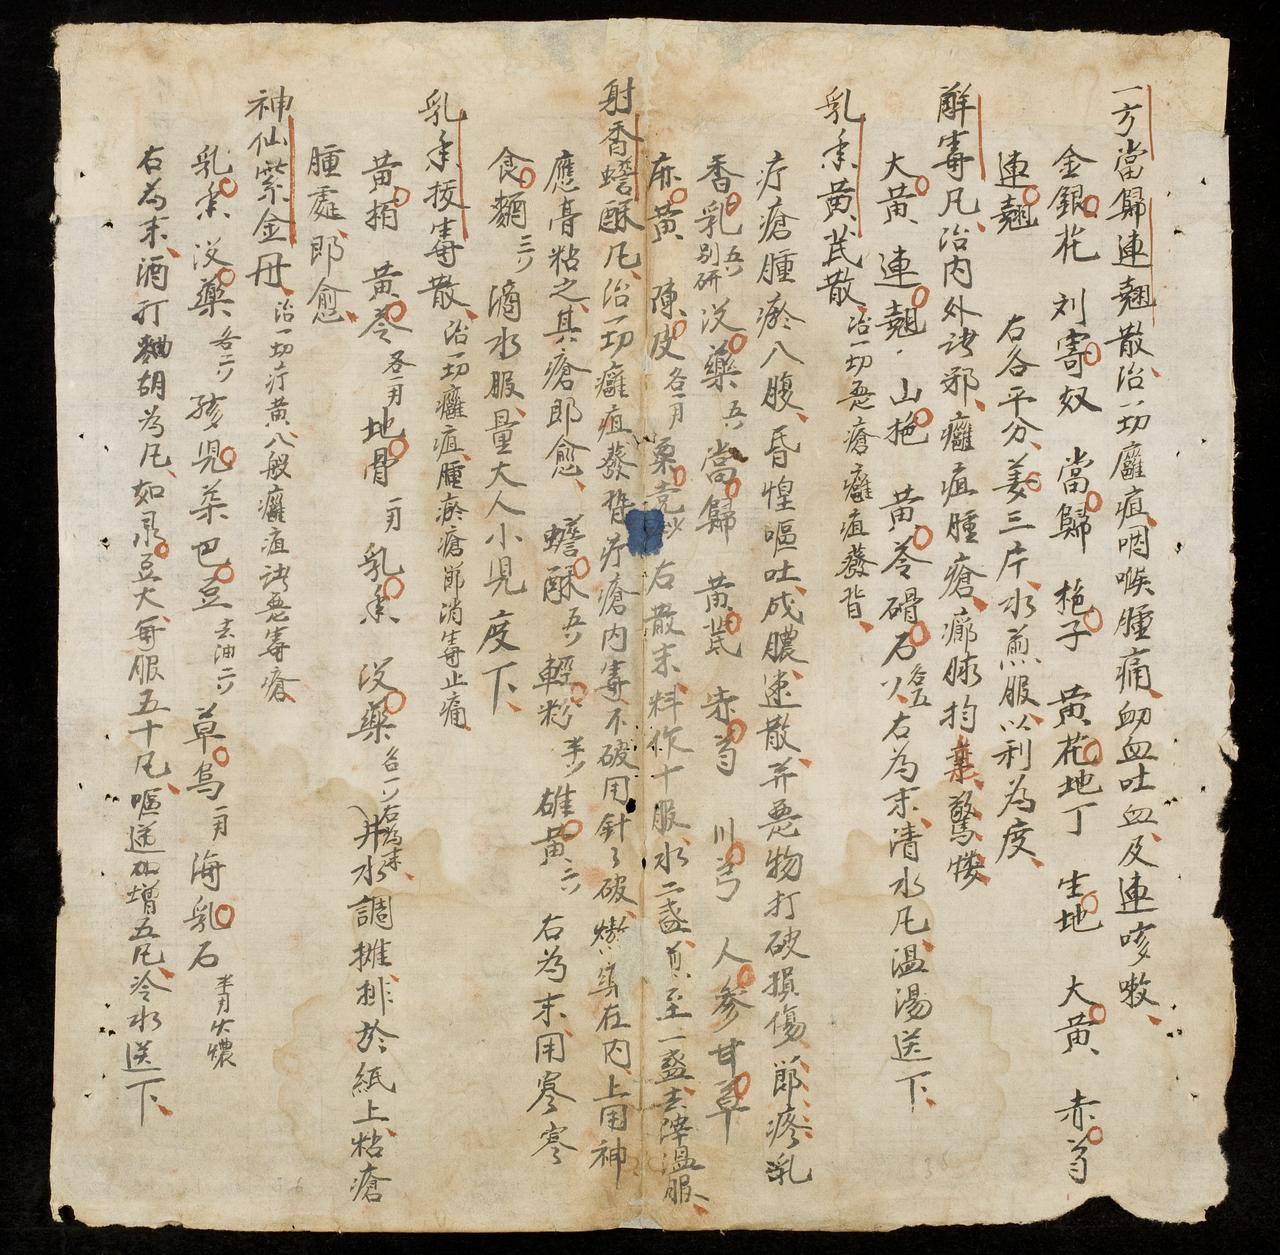 一方當歸連翹散治一切癰疽咽喉腫痛衂血吐血及連咳嗽
金銀花 刘寄奴 當歸 梔子 黄花地丁 生地 大黄 赤芍
連翹 右各平分姜三片水煎服以利為度
解毒凡治内外諸邪癰疽腫瘡 脉均 驚
大黄 連翹 山梔 黄芩 碃石各五 右為末清水凡温湯送下
乳香黄芪散治一切悪瘡癰疽發背
疔瘡腫瘀入腹昏惶嘔吐成膿速散并悪物打破損傷節疼乳
香乳别研 没藥 當歸 黄芪 赤芍 川芎 人參 甘草
麻黄 陳皮各一 粟壳 右散末料作十服水二盞煎至一盞去滓温服
射香蟾酥凡治一切癰疽發背疔瘡内毒不破用針々破 在内上用神
應膏粘之其瘡即愈 蟾酥 輕粉半 雄黄二 右為末用寒寒
食麵三 滴水服量大人小児度下
乳香拔毒散治一切癰疽腫瘀瘡節消毒止痛
黄柏 黄芩各一 地骨一 乳香 没藥各一 右為末井水調攤排於紙上粘瘡
腫處即愈
神仙紫金丹治一切疔黄八般癰疽諸悪毒瘡
乳香 没藥各二 孩児茶 巴豆去油二 草烏一 海乳石半 火
右為末酒打麺胡為凡如彔豆大每服五十凡嘔逆加增五凡冷水送下